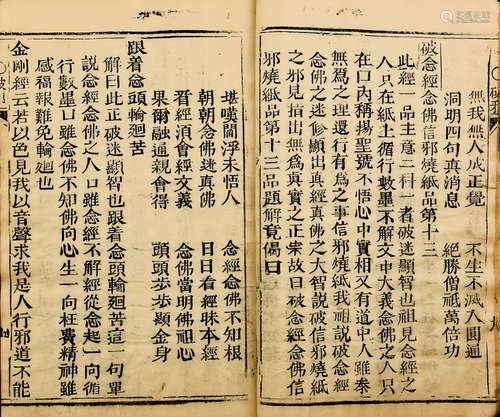 無我無人成正覺　不生不滅入圓通
洞明四句真消息　絕勝僧祇萬倍功
破念經念佛信邪燒紙品第十三
此經一品主意二科一者破迷顯智也祖見念經之
人只在紙上循行數墨不解文中大義念佛之人只
在口內稱揚聖號不悟心中實相又有道中人雖奉
無為之理還行有為之事信邪燒紙我祖說破念經
念佛之迷修顯出真經真佛之大智說破信邪燒紙
之邪見指出無為真實之正宗故曰破念經念佛信
邪燒紙品第十三品題解竟偈曰
堪嘆閻浮未悟人　念經念佛不知根
朝朝念佛迷真佛　日日看經昧本經
看經須會經文義　念佛當明佛祖心
果爾融通親會得　頭頭步步顯金身
跟着念頭輪迴苦
解曰此正破迷顯智也跟着念頭輪迴苦這一句單
說念經念佛之人口雖念經不解經從念起一向循
行數墨口雖念佛不知佛向心生一向枉費精神雖
感福報難免輪迴也
金剛經云若以色見我以音聲求我是人行邪道不能